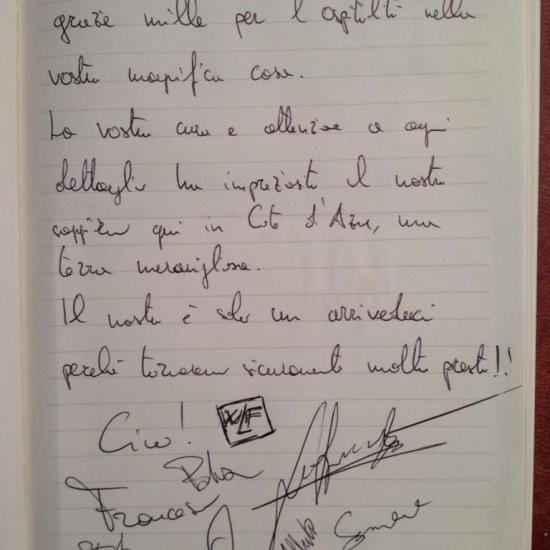 grazie mille per l'ospitalità nella
vostra magnifica casa.
La vostra cura e attenzione a ogni
dettaglio ha impreziosito il nostro
soggiorno qui in Côte d'Azur, una
terra meravigliosa.
Il nostro è solo un arrivederci
perché torneremo sicuramente molto presto!!
Ciao!
Francesca